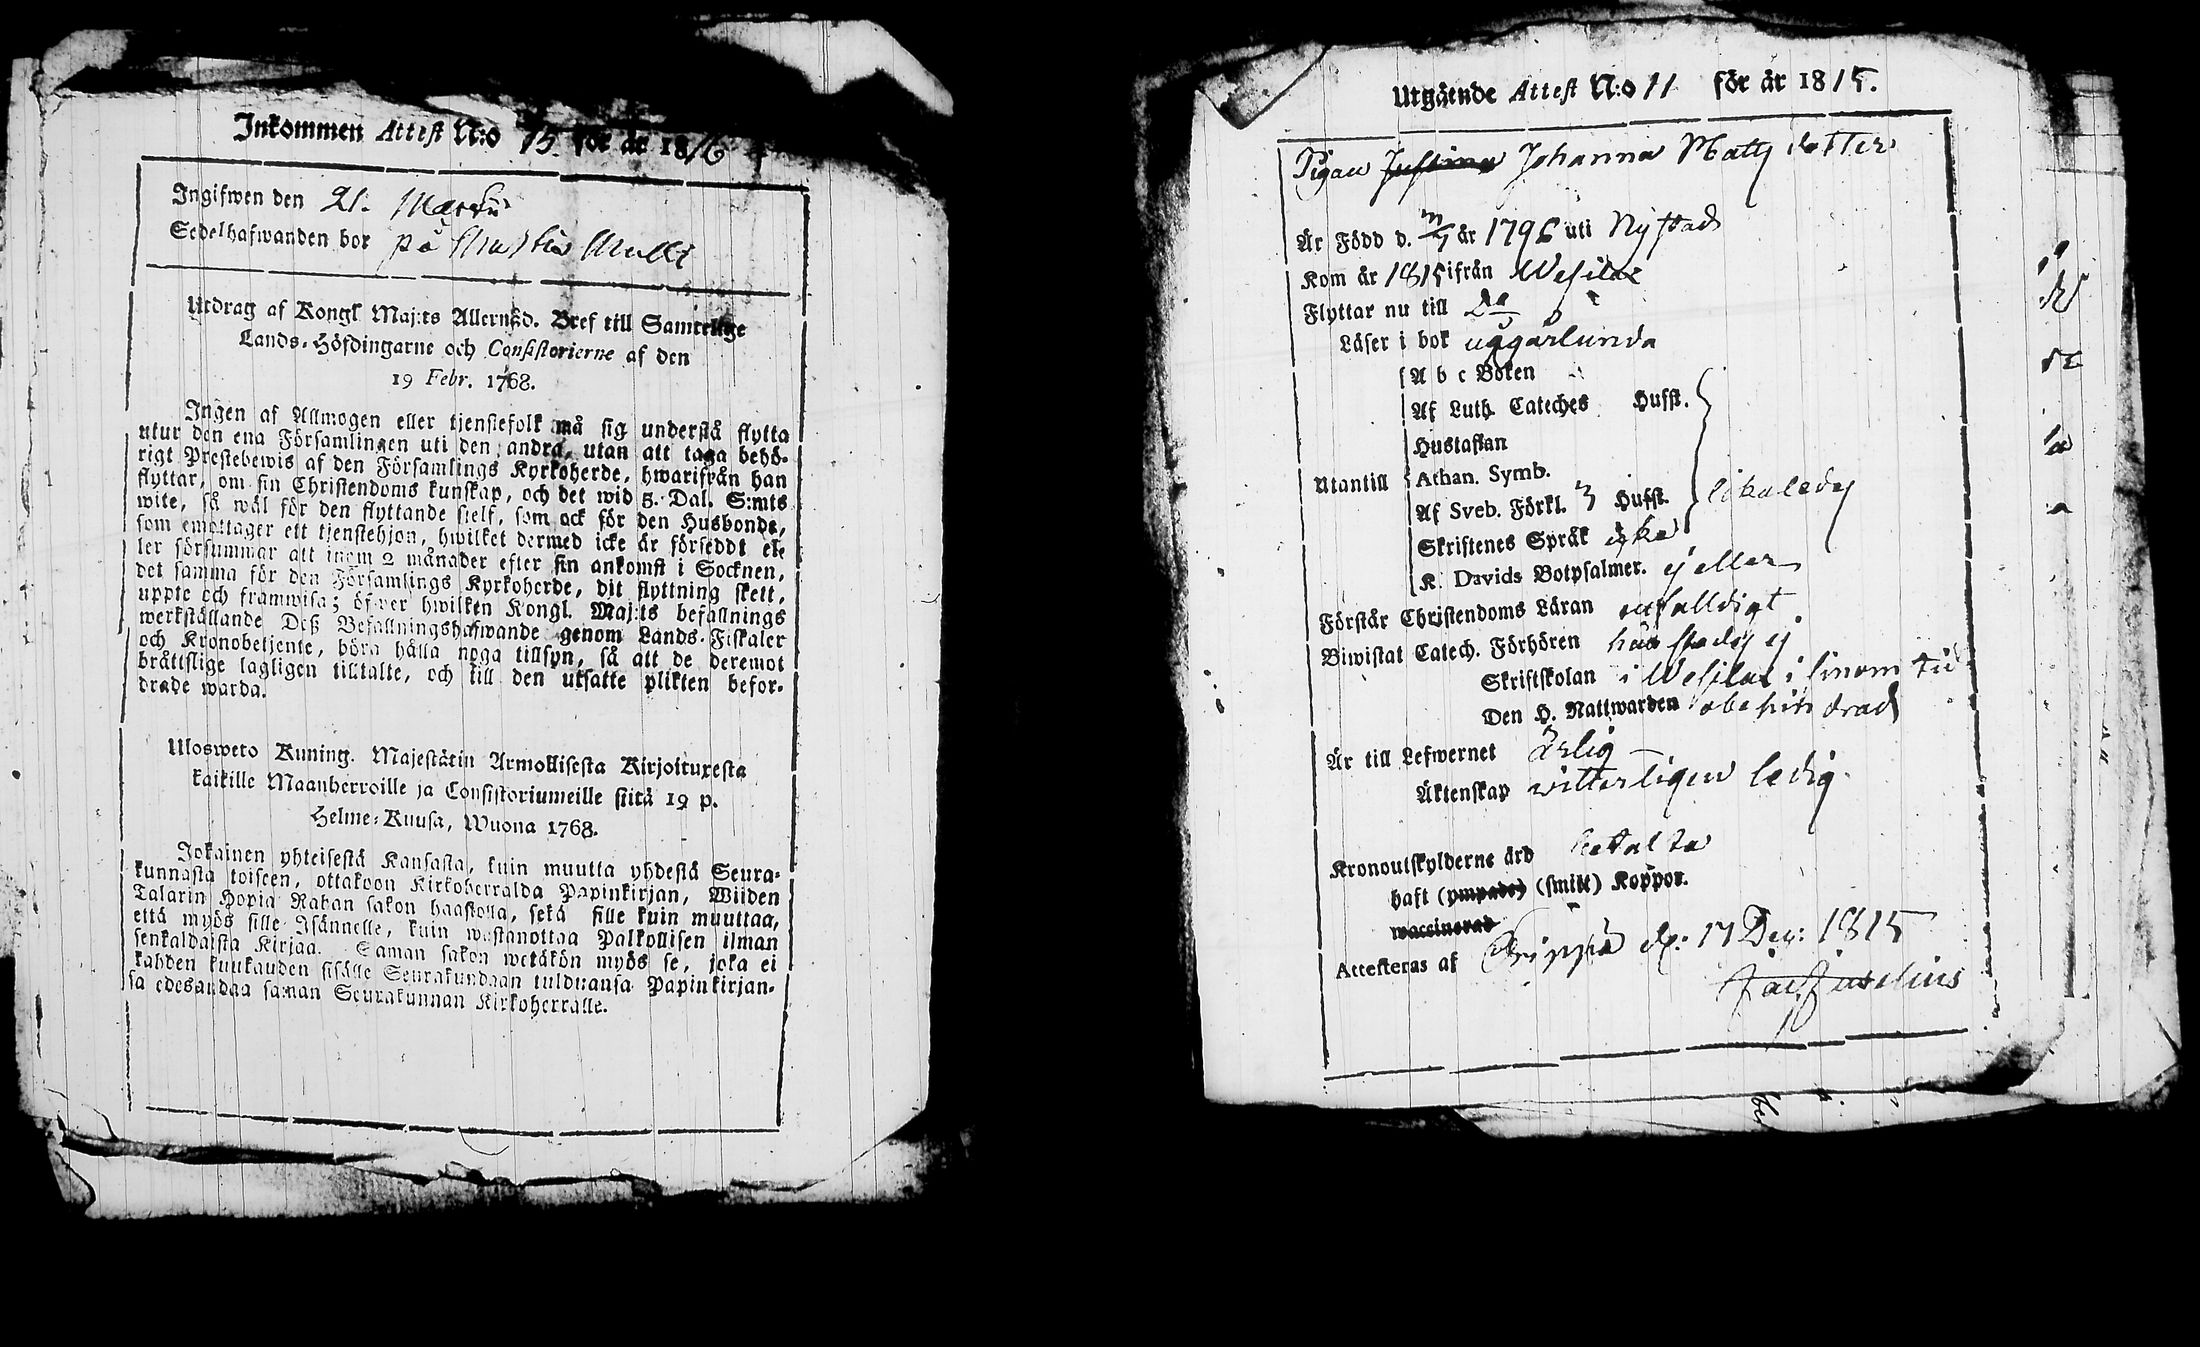 Inkommen Attest N:o 15. för år 1816
Ingifwen den 21. Martii
Sedelhafwanden bor på
Utdrag af Kongl Maj:ts Allernåd. Bref till Samtelige
Lands-Höfdingarne och Consistorierne af den
19 Febr. 1768.
Ingen af Allmogen eller tjenstefolk må sig understå flytta
utur den ena Församlingen uti den andra, utan att taga behö-
rigt Prestebewis af den Församlings Kyrkoherde, hwarifrån han
flyttar, om sin Christendoms kunskap, och det wid 5. Dal. S:mts
wite, så wäl för den flyttande sielf, som ock för den Husbonde,
som emottager ett tjenstehjon, hwilket dermed icke är förseddt el-
ler försummar att inom 2 månader efter sin ankomst i Socknen,
det samma för den Församlings Kyrkoherde, dit flyttning skett,
uppte och framwisa; öfwer hwilken Kongl. Maj:ts befallnings
werkställande Deß Befallningshafwande genom Lands-Fiskaler
och Kronobetjente, böra hålla noga tillsyn, så att de deremot
bråttslige lagligen tilltalte, och till den utsatte plikten befor-
drade warda.
Ulosweto Kuning. Majestätin Armollisesta Kirjoituxesta
kaikille Maanherroille ja Consistoriumeille siitä 19 p.
Helme-Kuusa, Wuona 1768.
Jokainen yhteisestä Kansasta, kuin muutta yhdestä Seura-
kunnasta toiseen, ottakoon Kirkoherralda Papinkirjan, Wiiden
Talarin Hopia Rahan sakon haastolla, sekä sille kuin muuttaa,
että myös sille Isännelle, kuin wastanottaa Palkollisen ilman
senkaldaista Kirjaa. Saman sakon wetäkön myös se, joka ei
kahden kuukauden sisälle Seurakundaan tulduansa Papinkirjan-
sa edesandaa saman Seurakunnan Kirkoherralle.
Utgående Attest N:o 11 för år 1815.
Pigan Justina Johanna Matts dotter
Är Född d. år 1796 uti Nystad
Kom år 1815 ifrån Wesilax
Flyttar nu till Do
Läser i bok någårlunda
A b c Boken
Af Luth. Cateches Hufst.
Hustaflan
Utantill Athan. Symb.
Af Sveb. Förkl. 3 Hufst. likaledes
Skriftenes Språk icke
K. Davids Botpsalmer. ej eller
Förstår Christendoms Läran enfalldigt
Biwistat Catech. Förhören härstedes ej
Skriftskolan i Wesilax i sinom tid
Den H. Nattwarden obehindrad
Är till Lefwernet ärlig
Äktenskap witterligen ledig
Kronoutskylderne ärd betalta
haft (ympade) (smitt) Koppor.
waccinerad
Attesteras af Grippis d. 17 Dec: 1815